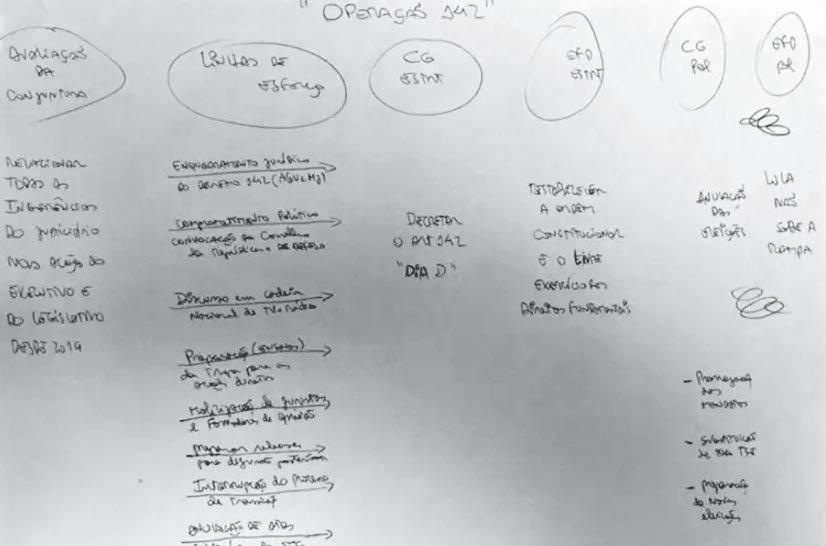 "OPERAÇÃO 142"
AVALIAÇÃO
DA
CONJUNTURA
RELACIONAR
TODAS AS
INGERÊNCIAS
DO JUDICIÁRIO
NAS AÇÕES DO
EXECUTIVO E
DO LEGISLATIVO
DESDE 2019
LINHAS DE
ESFORÇO
ENQUADRAMENTO jurídico
DO DECRETO 142 (AGU e MJ)
Comprometimento Político
CONVOCAÇÃO dos Conselhos
da República e DE DEFESA
Discurso em cadeia
Nacional de TV e Rádio
Preparação
da Tropa para as
ações diretas
Mobilização de juristas
e Formadores de opinião
Preparar releases
para
Interrupção do Processo
de Transição
ANULAÇÃO DE Atos
CG
ESTRT
DECRETAR
O ART 142
"DIA D"
EFD
ESTRT
RESTABELECER
A ORDEM
CONSTITUCIONAL
E O LIVRE
EXERCÍCIO DOS
Direitos FUNDAMENTAIS
CG
POL
ANULAÇÃO
DAS
ELEIÇÕES
- Prorrogação
dos
MANDATOS
- SUBSTITUIÇÃO
de todo TSE
- preparação
de Novas
eleições
EFD
POL
LULA
NÃO
SOBE A
RAMPA